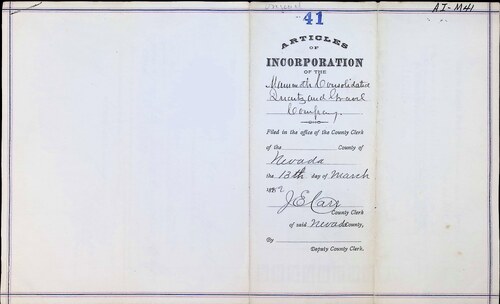 41
AI-M41
ARTICLES
OF
INCORPORATION
OF THE
Mammoth Consolidated
Quartz and Gravel
Company.
Filed in the office of the County Clerk
of the County of
Nevada
the 13th day of March
188
J E Carr
County Clerk
of said Nevada County,
By
Deputy County Clerk.